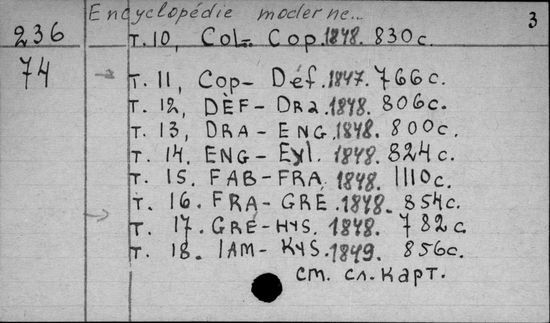 Encyclopédie moderne...
3
236
74
т. 10, Col- Cop. 1848. 830 с.
т. 11, Cop- Déf. 1847. 766 с.
т. 12, DÈF- Dra. 1848. 806 с.
т. 13, DRA- ENG. 1848. 800 с.
т. 14. ENG- Eyl. 1848. 824 с.
т. 15. FAB-FRA 1848. 1110 с.
т. 16. FRA-GRÉ. 1848. 854 с.
т. 17. GRÉ-HYS. 1848. 782 с.
т. 18. IAM-KYS. 1849. 856 с.
см. сл. карт.